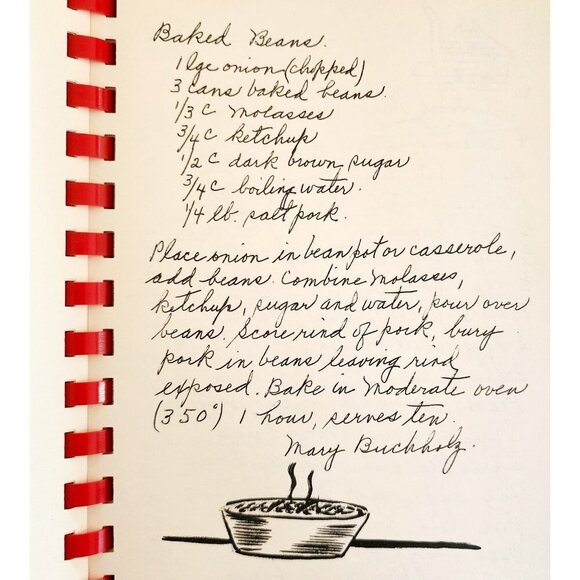 Baked Beans.
1 lge onion (chopped)
3 cans baked beans.
1/3 c molasses
3/4 c ketchup
1/2 c dark brown sugar
3/4 c boiling water.
1/4 lb. salt pork.
Place onion in bean pot or casserole,
add beans. Combine molasses,
ketchup, sugar and water, pour over
beans. Score rind of pork, bury
pork in beans leaving rind
exposed. Bake in moderate oven
(350°) 1 hour, serves ten.
Mary Buchholz.